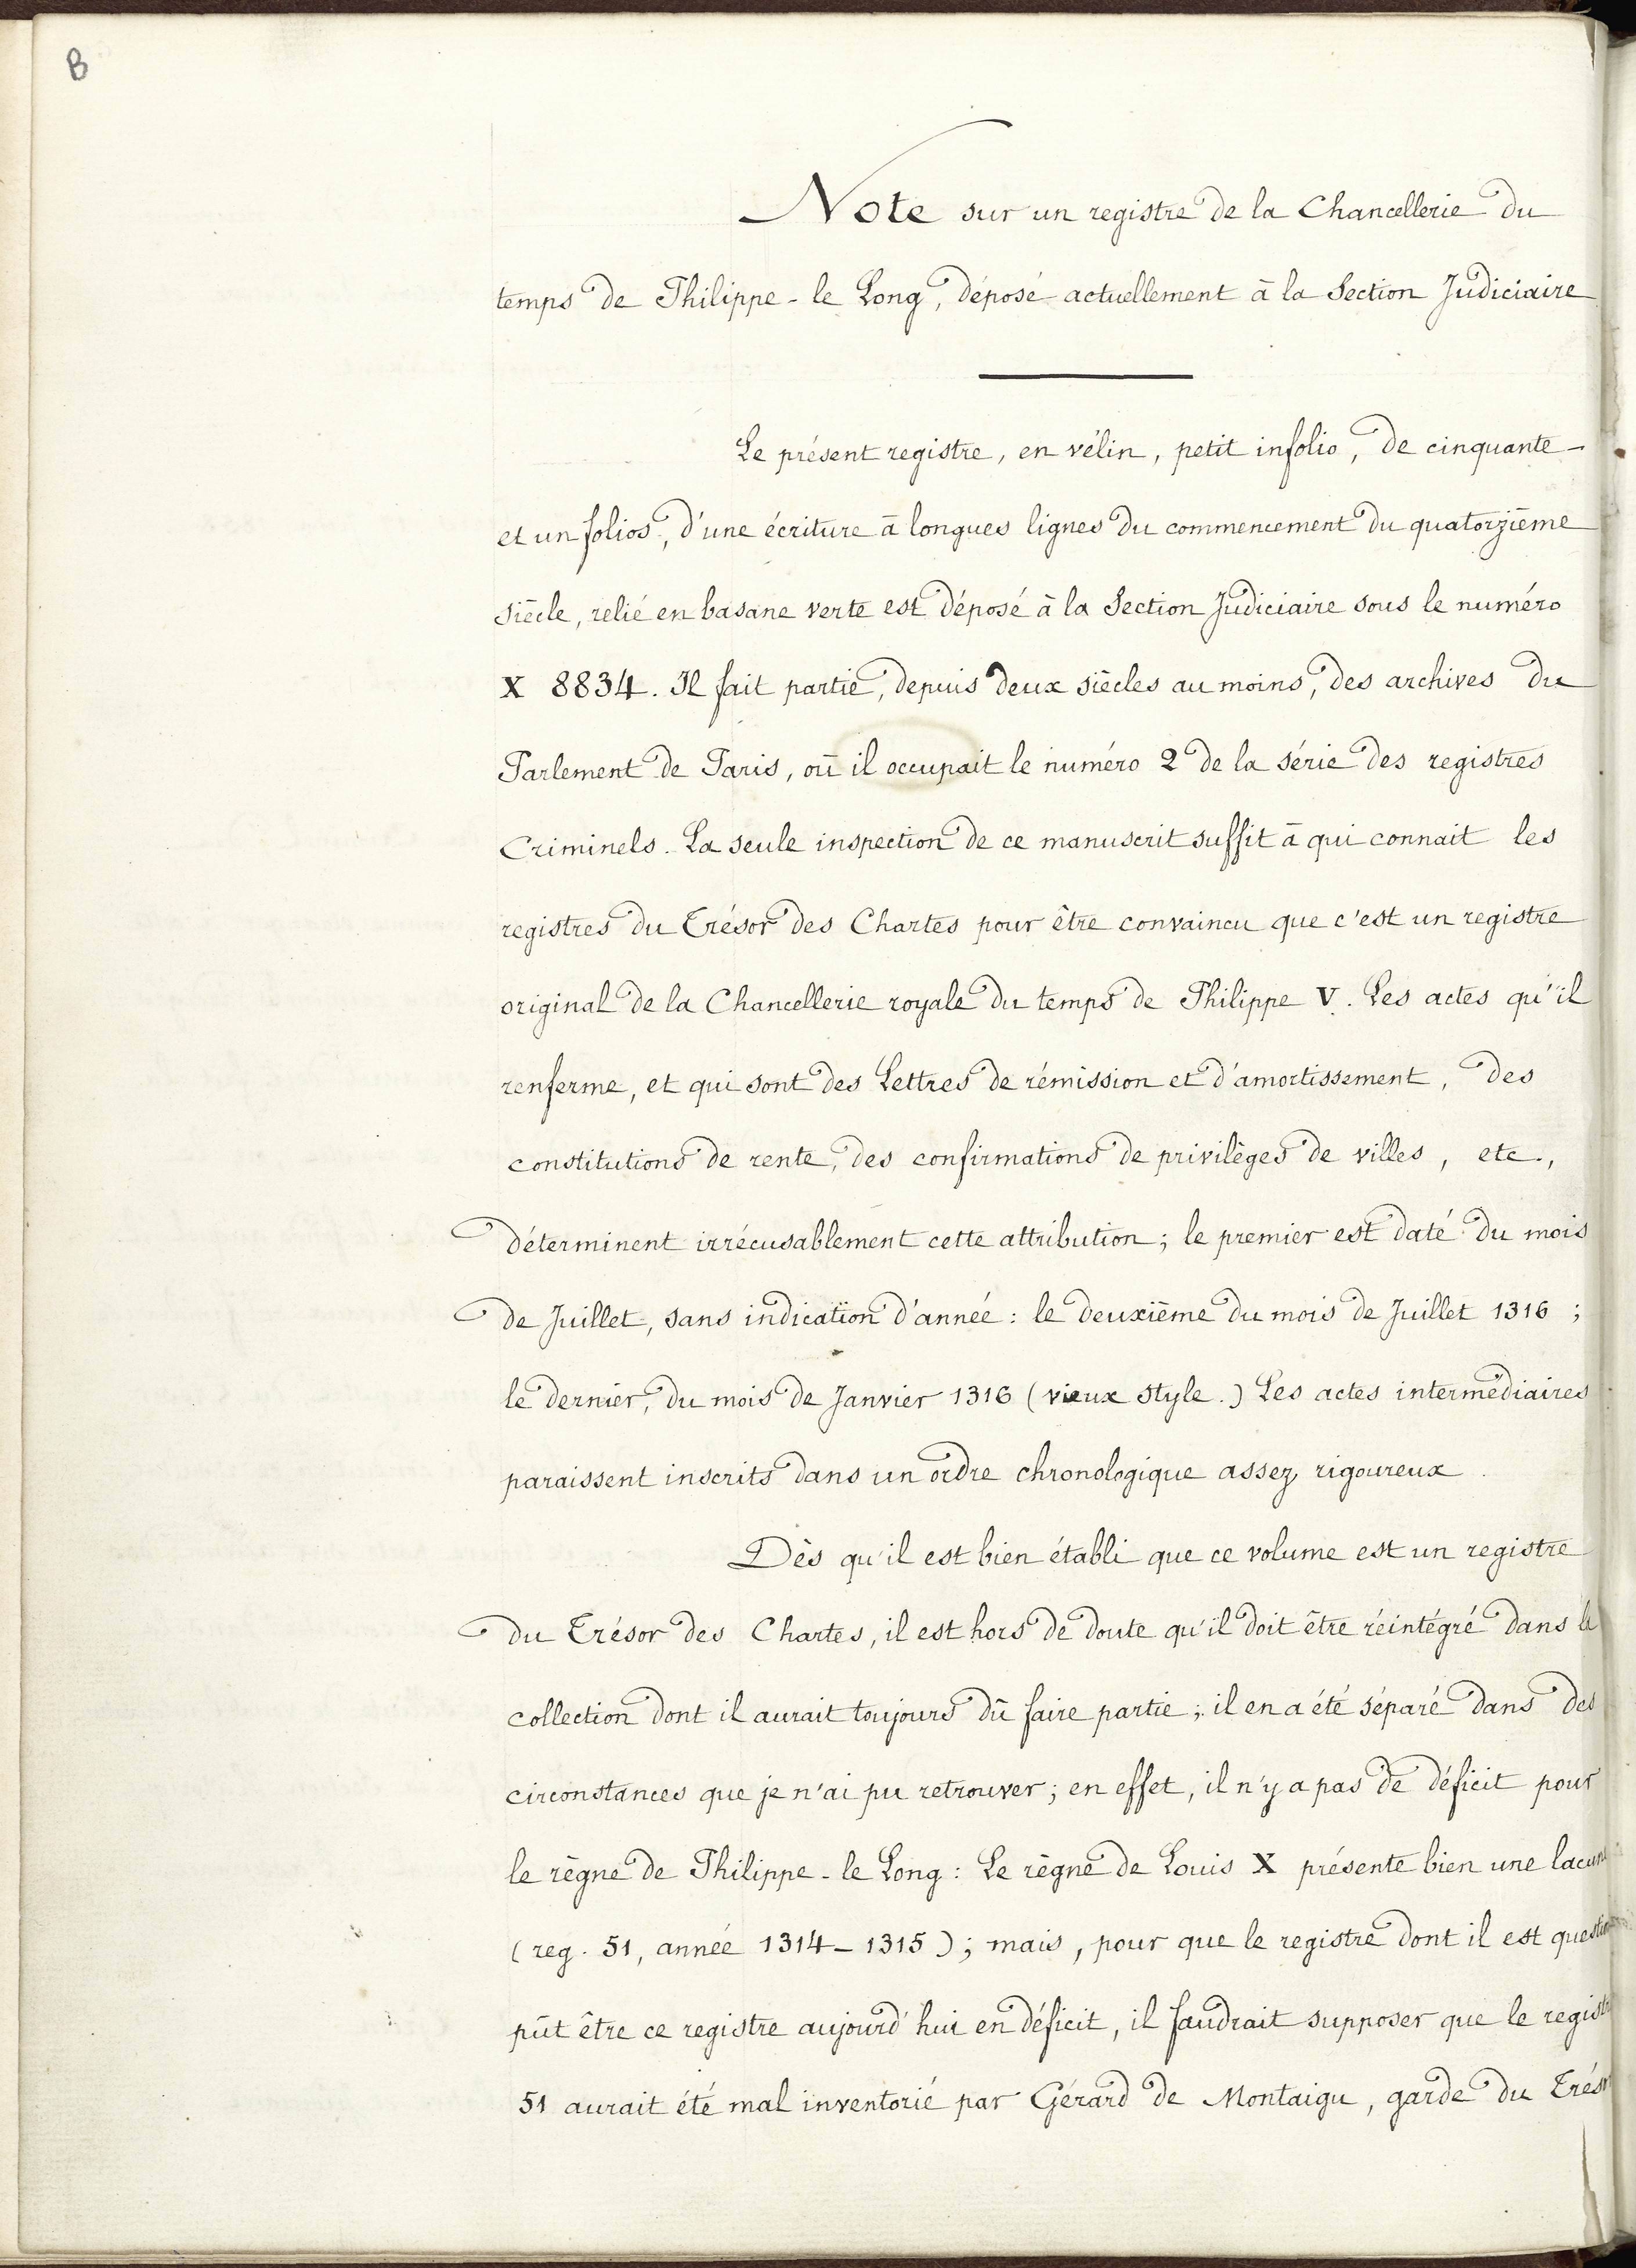 B
Note sur un registre de la Chancellerie du
temps de Philippe-le Long, déposé actuellement à la Section Judiciaire
Le présent registre, en vélin, petit infolio, de cinquante-
et un folios, d'une écriture à longues lignes du commencement du quatorzième
siècle, relié en basane verte est déposé à la Section Judiciaire sous le numéro
X 8834. Il fait partie, depuis deux siècles au moins, des archives du
Parlement de Paris, où il occupait le numéro 2 de la série des registres
Criminels. La seule inspection de ce manuscrit suffit à qui connait les
registres du Trésor des Chartes pour être convaincu que c'est un registre
original de la Chancellerie royale du temps de Philippe V. Les actes qu'il
renferme, et qui sont des Lettres de rémission et d'amortissement, des
constitutions de rente, des confirmations de privilèges de villes, etc.,
déterminent irrécusablement cette attribution; le premier est daté du mois
de Juillet, sans indication d'année : le deuxième du mois de Juillet 1316 ;
le dernier, du mois de Janvier 1316 (vieux style.) Les actes intermédiaires
paraissent inscrits dans un ordre chronologique assez rigoureux.
Dès qu'il est bien établi que ce volume est un registre
du Trésor des Chartes, il est hors de doute qu'il doit être réintégré dans la
collection dont il aurait toujours dû faire partie ; il en a été séparé dans des
circonstances que je n'ai pu retrouver ; en effet, il n'y a pas de déficit pour
le règne de Philippe-le Long : Le règne de Louis X présente bien une lacune
(reg. 51, année 1314-1315) ; mais, pour que le registre dont il est question
pût être ce registre aujourd'hui en déficit, il faudrait supposer que le registre
51 aurait été mal inventorié par Gérard de Montaigu, garde du Trésor